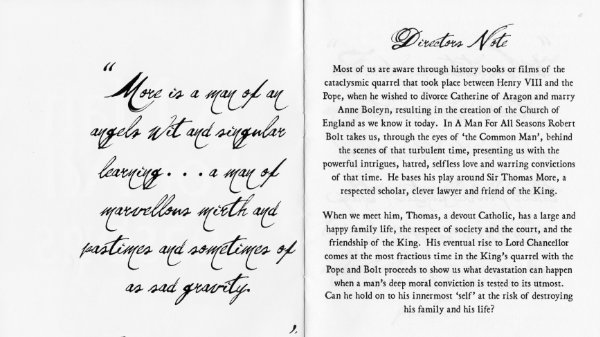 "
More is a man of an
angels wit and singular
learning . . . a man of
marvellous mirth and
pastimes and sometimes of
as sad gravity.
"
Directors Note
Most of us are aware through history books or films of the
cataclysmic quarrel that took place between Henry VIII and the
Pope, when he wished to divorce Catherine of Aragon and marry
Anne Boleyn, resulting in the creation of the Church of
England as we know it today. In A Man For All Seasons Robert
Bolt takes us, through the eyes of 'the Common Man', behind
the scenes of that turbulent time, presenting us with the
powerful intrigues, hatred, selfless love and warring convictions
of that time. He bases his play around Sir Thomas More, a
respected scholar, clever lawyer and friend of the King.
When we meet him, Thomas, a devout Catholic, has a large and
happy family life, the respect of society and the court, and the
friendship of the King. His eventual rise to Lord Chancellor
comes at the most fractious time in the King's quarrel with the
Pope and Bolt proceeds to show us what devastation can happen
when a man's deep moral conviction is tested to its utmost.
Can he hold on to his innermost 'self' at the risk of destroying
his family and his life?